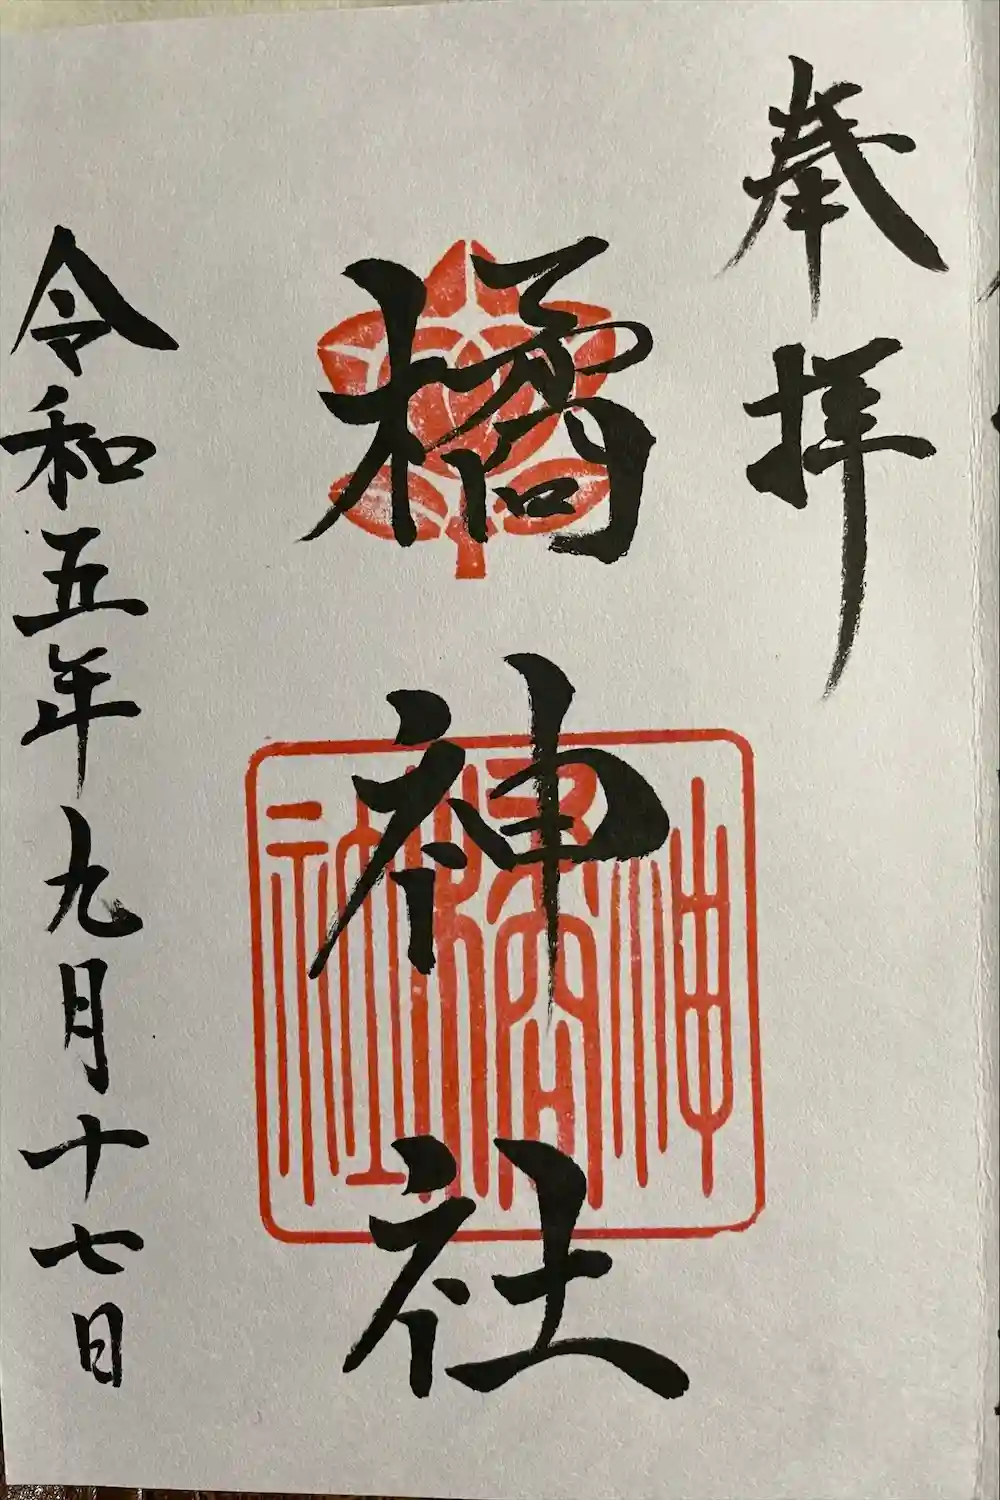 奉拝
橘神社
神橘社
令和五年九月十七日